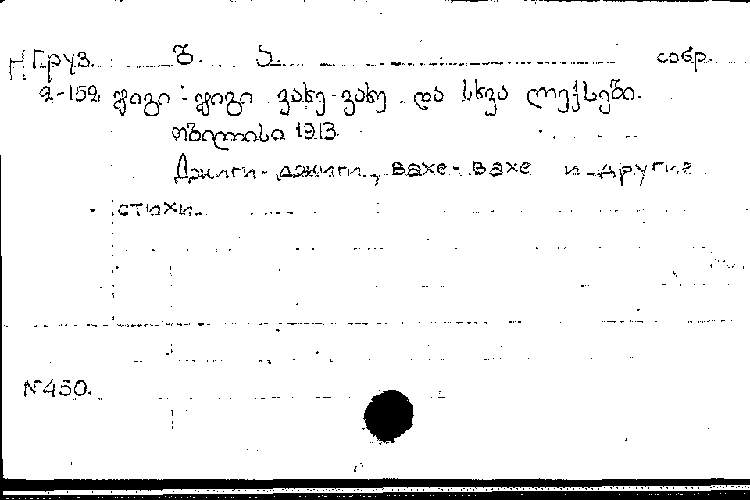 Н Груз. შ. ა. собр.
2-152 ჯიგი-ჯიგი ვახე-ვახე და სხვა ლექსები.
თბილისი 1913.
Джиги-джиги, вахе-вахе и другие
стихи.
№450.